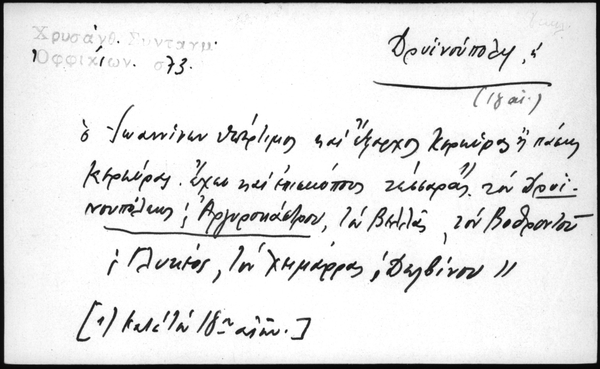 Χρυσάνθ. Συνταγμ.
Ὀφφικίων. σ. 73.
Δρυϊνούπολη, ἡ
(18 αἰ.)
ὁ Ἰωαννίνων ὑπέρτιμος καὶ ἔξαρχος Κερκύρας ἢ πάσης
Κερκύρας. Ἔχει καὶ ἐπισκόπους τέσσαρας, τὸν Δρυϊ-
νουπόλεως ἢ Ἀργυροκάστρου, τὸν Βελλᾶς, τὸν Βοθροντοῦ
ἢ Γλυκέος, τὸν Χειμάρρας ἢ Δελβίνου //
[1) κατὰ τὸν 18ον αἰῶν.]